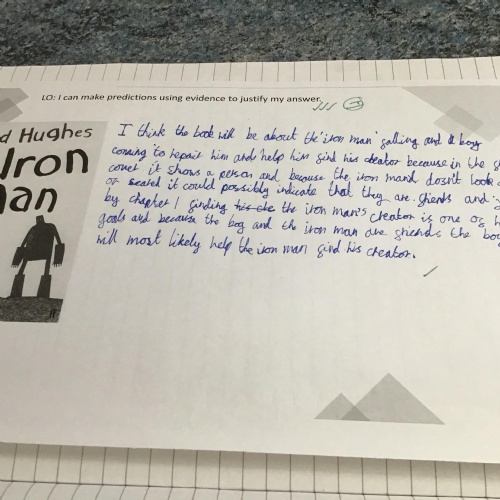 LO: I can make predictions using evidence to justify my answer.
3
d Hughes
Iron
an
I think the book will be about the 'iron man' falling and a boy
coming to repair him and help him find his creator because in the
cover it shows a person and because the iron man doesn't look
or scared it could possibly indicate that they are friends and
by chapter 1 finding the iron man's creator is one of
goals and because the boy and the iron man are friends the boy
will most likely help the iron man find his creator.